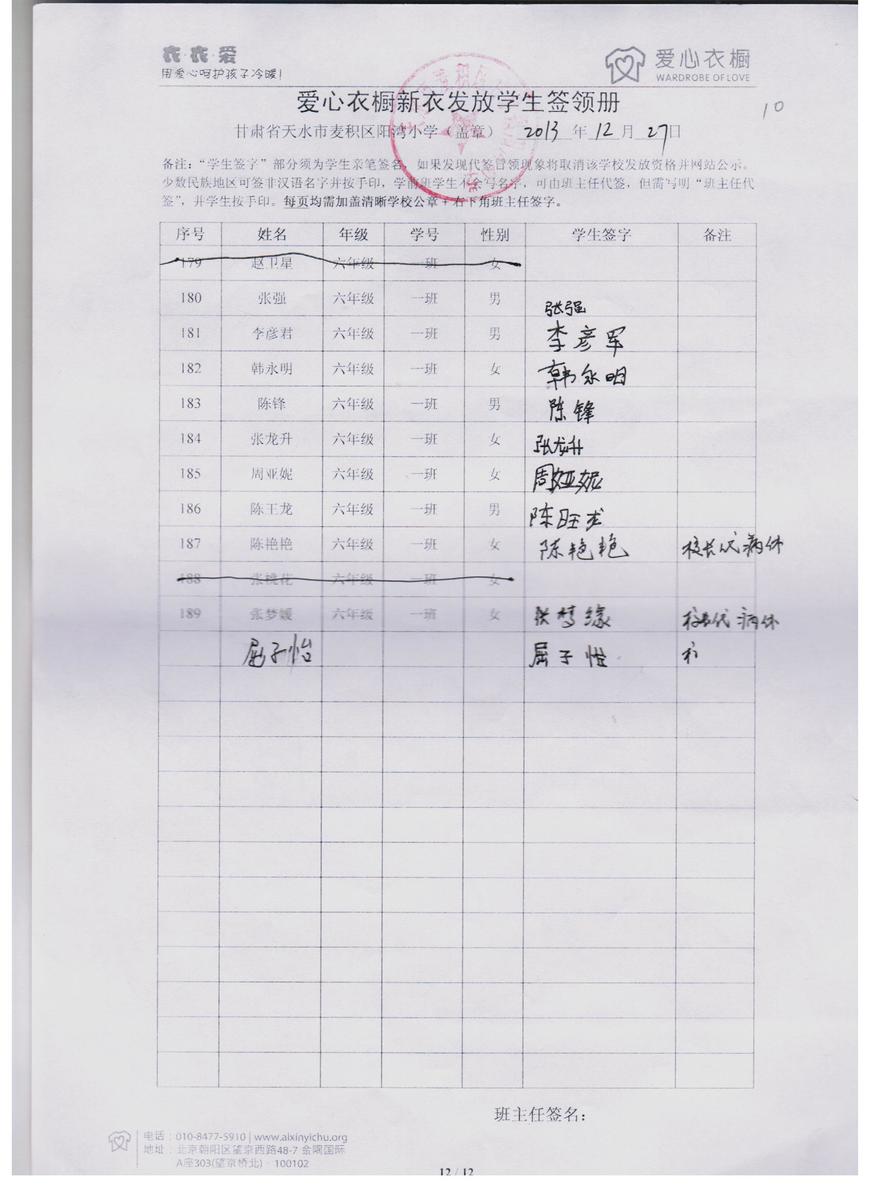 衣·衣·爱
用爱心呵护孩子冷暖!
爱心衣橱
WARDROBE OF LOVE
10
爱心衣橱新衣发放学生签领册
甘肃省天水市麦积区阳湾小学（盖章） 2013 年 12 月 27日
备注：“学生签字”部分须为学生亲笔签名，如果发现代签冒领现象将取消该学校发放资格并网站公示。
少数民族地区可签非汉语名字并按手印，学前班学生不会写名字，可由班主任代签，但需写明“班主任代
签”，并学生按手印。每页均需加盖清晰学校公章+右下角班主任签字。
序号 姓名 年级 学号 性别 学生签字 备注
179 赵卫星 六年级 一班 女
180 张强 六年级 一班 男 张强
181 李彦君 六年级 一班 男 李彦军
182 韩永明 六年级 一班 女 韩永明
183 陈锋 六年级 一班 男 陈锋
184 张龙升 六年级 一班 女 张龙升
185 周亚妮 六年级 一班 女 周娅妮
186 陈王龙 六年级 一班 男 陈旺龙
187 陈艳艳 六年级 一班 女 陈艳艳 校长代 病休
188 张桃花 六年级 一班 女
189 张梦媛 六年级 一班 女 张梦缘 校长代 病休
屈子怡 屈子怡
班主任签名：
电话：010-8477-5910 | www.aixinyichu.org
地址：北京朝阳区望京西路48-7 金隅国际
A座303(望京桥北)·100102
12 / 12